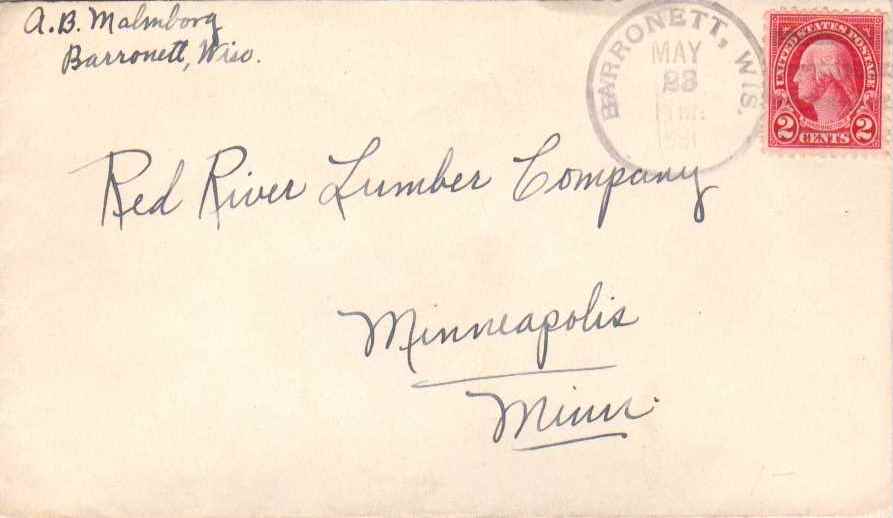 A.B. Malmborg
Barronett, Wisc.
BARRONETT, WIS.
MAY
23
UNITED STATES POSTAGE
2 CENTS 2
Red River Lumber Company
Minneapolis
Minn.